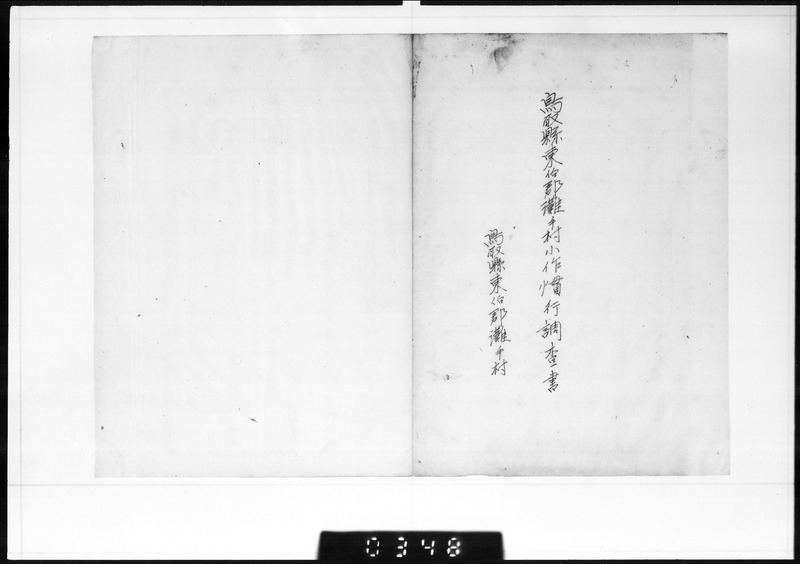 鳥取縣東伯郡灘手村小作慣行調査書
鳥取縣東伯郡灘手村
0348